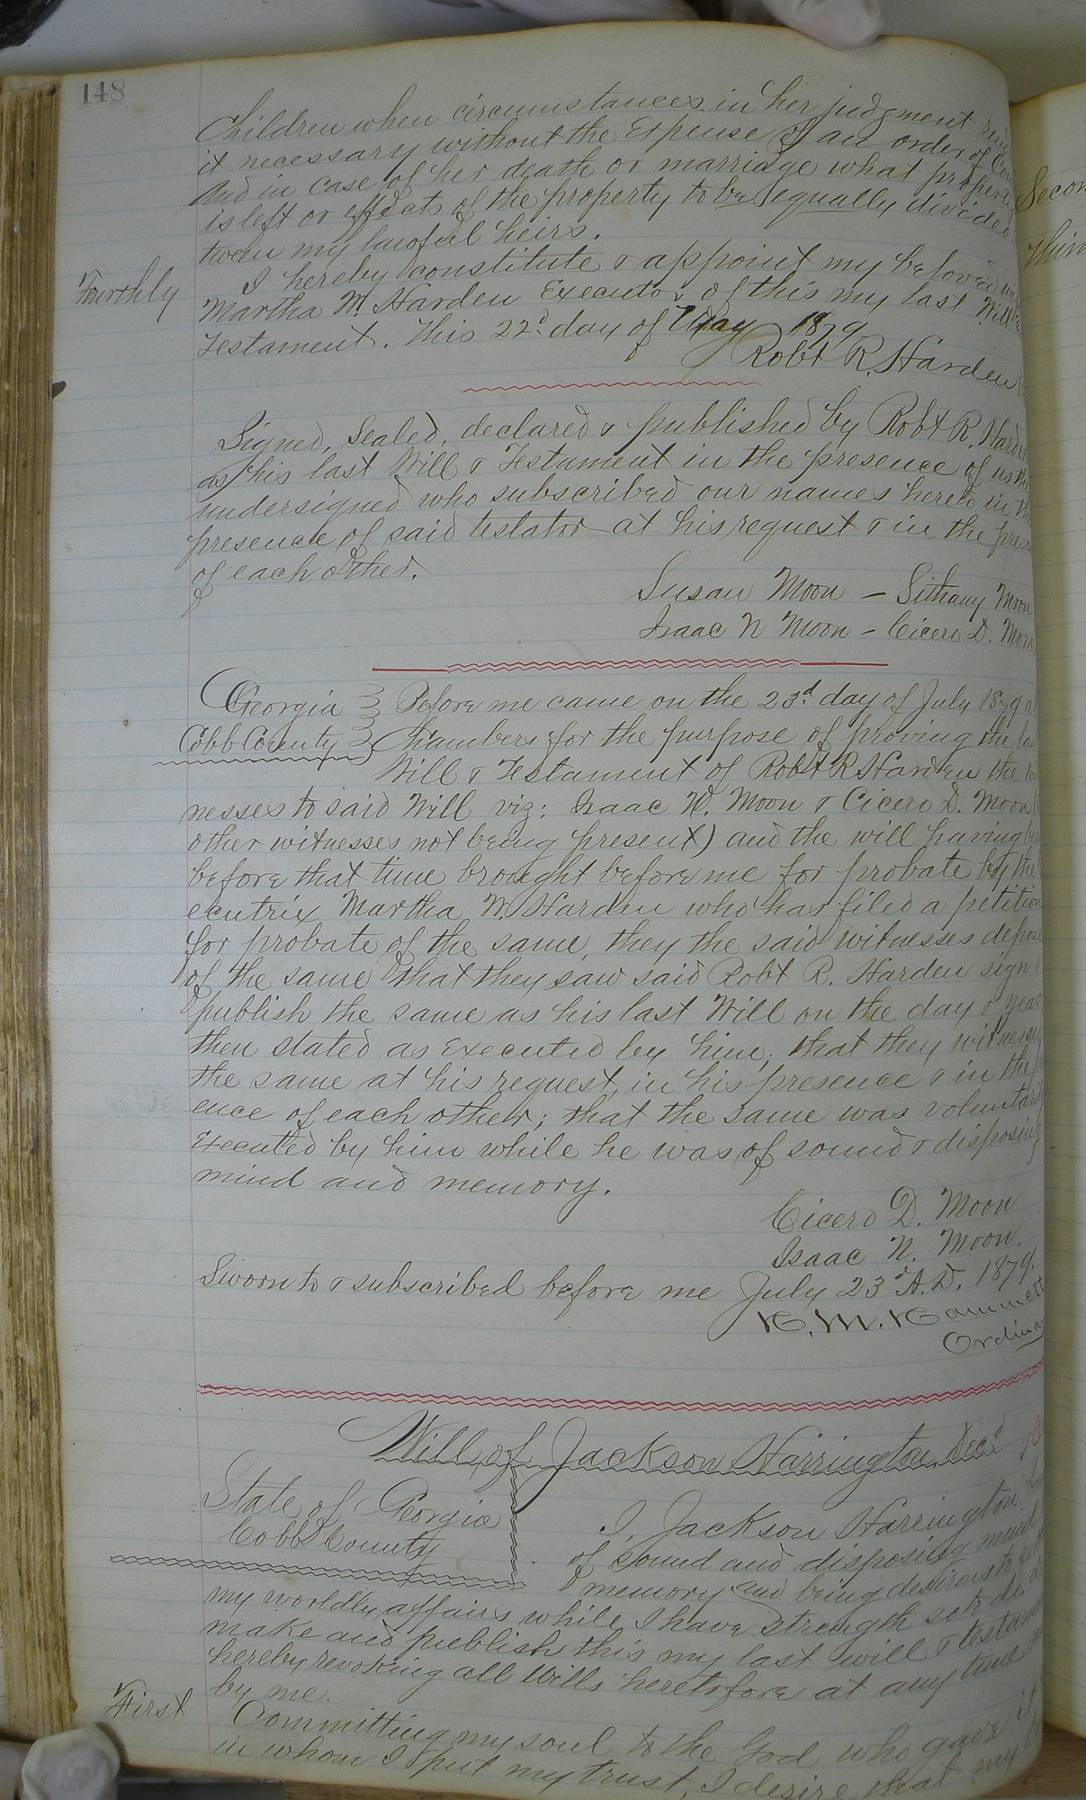 148
Children when circumstances in her judgment
it necessary without the Expense of an order of
And in case of her death or marriage what
is left or effects of the property to be equally divided
tween my lawful heirs.
Fourthly I hereby constitute & appoint my beloved
Martha W. Harden Executor of this my last Will
Testament. This 22d day of May 1879
Robt R. Harden
Signed, Sealed, declared & published by Robt R.
as his last Will & Testament in the presence of us
undersigned who subscribed our names hereto in
presence of said testator at his request & in the
of each other.
Susan Moon - Sithany Moon
Isaac N Moon - Cicero D. Moon
Georgia Before me came on the 23d day of July 1879
Cobb County Chambers for the purpose of proving the
Will & Testament of Robt R Harden the
nesses to said Will viz: Isaac N. Moon & Cicero D. Moon
other witnesses not being present) and the will having
before that time brought before me for probate by the
ecutrix Martha W. Harden who has filed a petition
for probate of the same, they the said witnesses
of the same that they saw said Robt R. Harden sign
publish the same as his last Will on the day & year
then stated as Executed by him; that they
the same at his request, in his presence & in the
ence of each other; that the same was
Executed by him while he was of sound & disposing
mind and memory.
Cicero D. Moon
Isaac N. Moon.
Sworn to & subscribed before me July 23d A.D. 1879.
Ordinary
Will of Jackson Harrington Decd
State of Georgia
Cobb County
I, Jackson Harrington
of sound and disposing mind
& memory and being desirous to
my worldly affairs while I have strength so to do
make and publish this my last will &
hereby revoking all Wills heretofore at any time
by me.
First Committing my soul to the God who gave it
in whom I put my trust, I desire that my
Secon